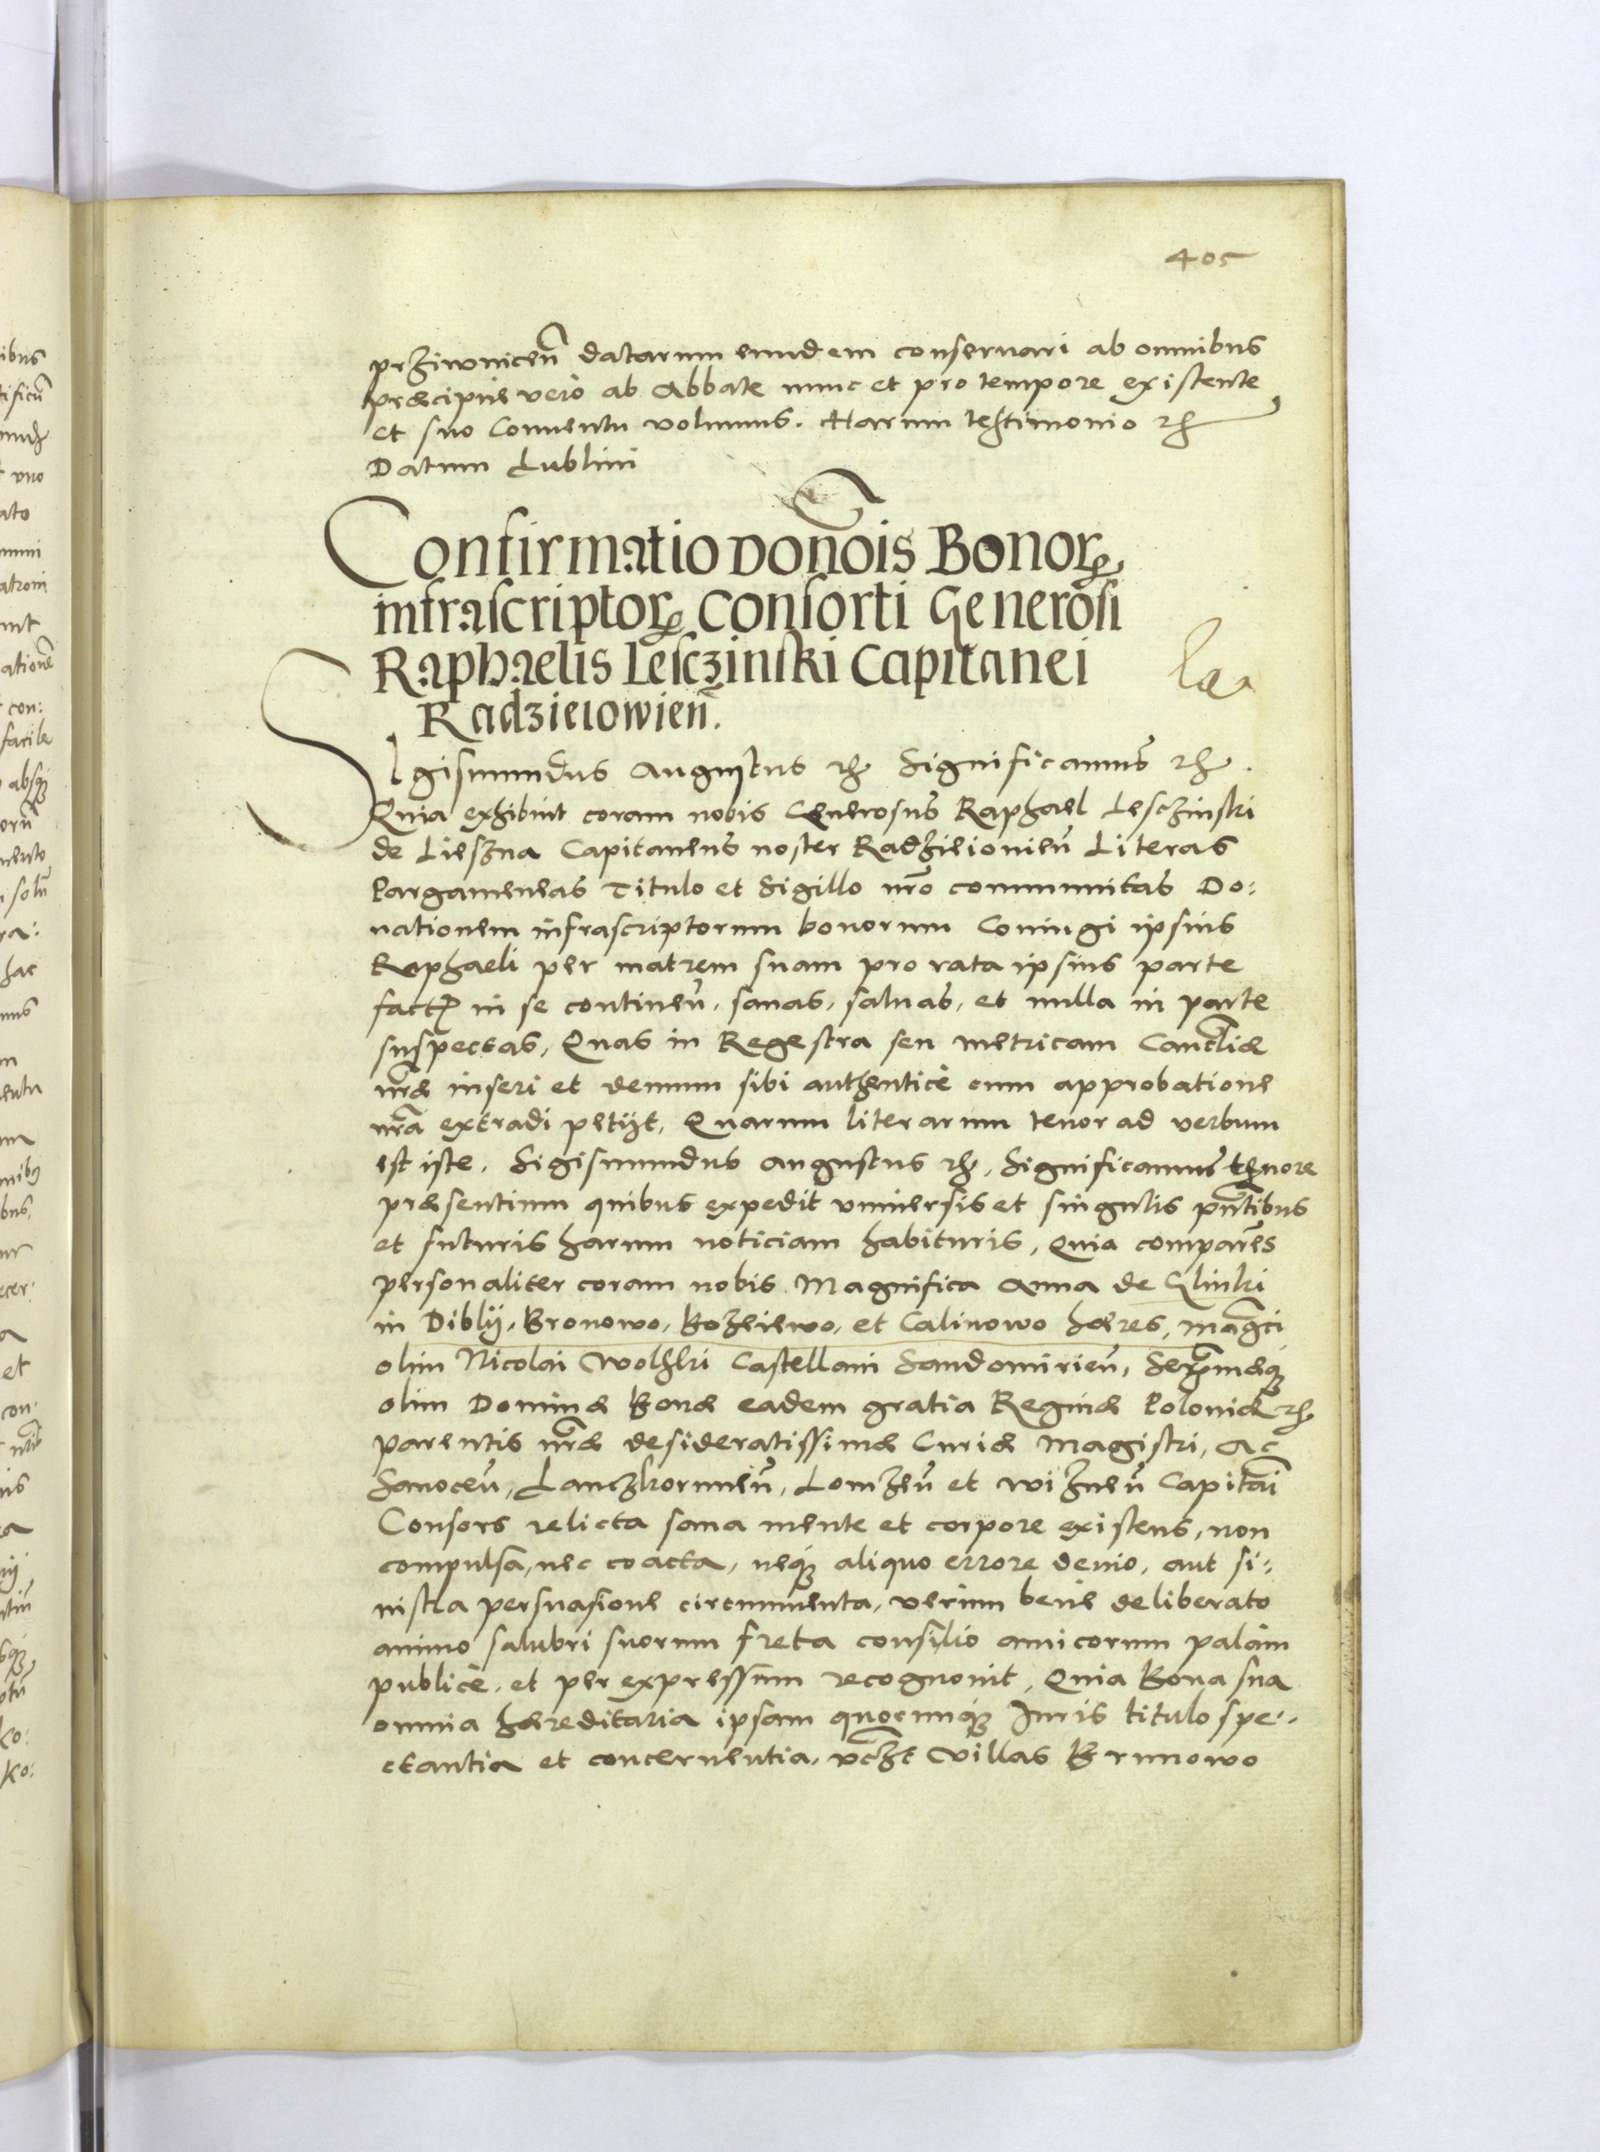 405
prziwnicen̄ datarum eundem conseruari ab omnibus
præcipue vero ab Abbate nunc et pro tempore existente
et suo Conuentu volumus. Harum testimonio etc
Datum Lublini
Confirmatio Donōis Bonoꝝ
infrascriptoꝝ Consorti Generosi
Raphaelis Lesczinski Capitanei
Radzieiowien̄.
Sigismundus Augustus etc Significamus etc.
Quia exhibuit coram nobis Generosus Raphael Lesczinski
de Lieszna Capitaneus noster Radzieiouien̄ Literas
Pargameneas Titulo et Sigillo nr̄o communitas Do:
nationem infrascriptorum bonorum Coniugi ipsius
Raphaeli per matrem suam pro rata ipsius parte
factā in se continen̄, sanas, saluas, et nulla in parte
suspectas, Quas in Regestra seu metricam Cancll̄iæ
nr̄æ inseri et demum sibi authenticè cum approbatione
nr̄a extradi petijt, Quarum literarum tenor ad verbum
est iste. Sigismundus Augustus etc, Significamus tenore
præsentium quibus expedit vniuersis et singulis pn̄tibus
et futuris harum noticiam habituris, Quia comparēs
personaliter coram nobis Magnifica Anna de Glinki
in Diblij, Bronowo, Kozielewo, et Calinowo hæres, Maḡci
olim Nicolai Wolski Castellani Sandomirien̄, Ser̄mæq3
olim Dominæ Bonæ eadem gratia Reginæ Poloniæ etc
parentis nr̄æ desideratissimæ Curiæ Magistri, Ac
Sanocen̄, Lanczkorunien̄, Lomzen̄ et Wiznen̄ Capitāi
Consors relicta sana mente et corpore existens, non
compulsa, nec coacta, neq3 aliquo errore deuio, aut si:
nistra persuasione circumuenta, verùm bene deliberato
animo salubri suorum freta consilio amicorum palàm
publicè, et per expressum recognouit, Quia Bona sua
omnia hæreditaria ipsam quocunq3 Juris titulo spe:
ctantia et concernentia, vc̄zt villas Brunowo